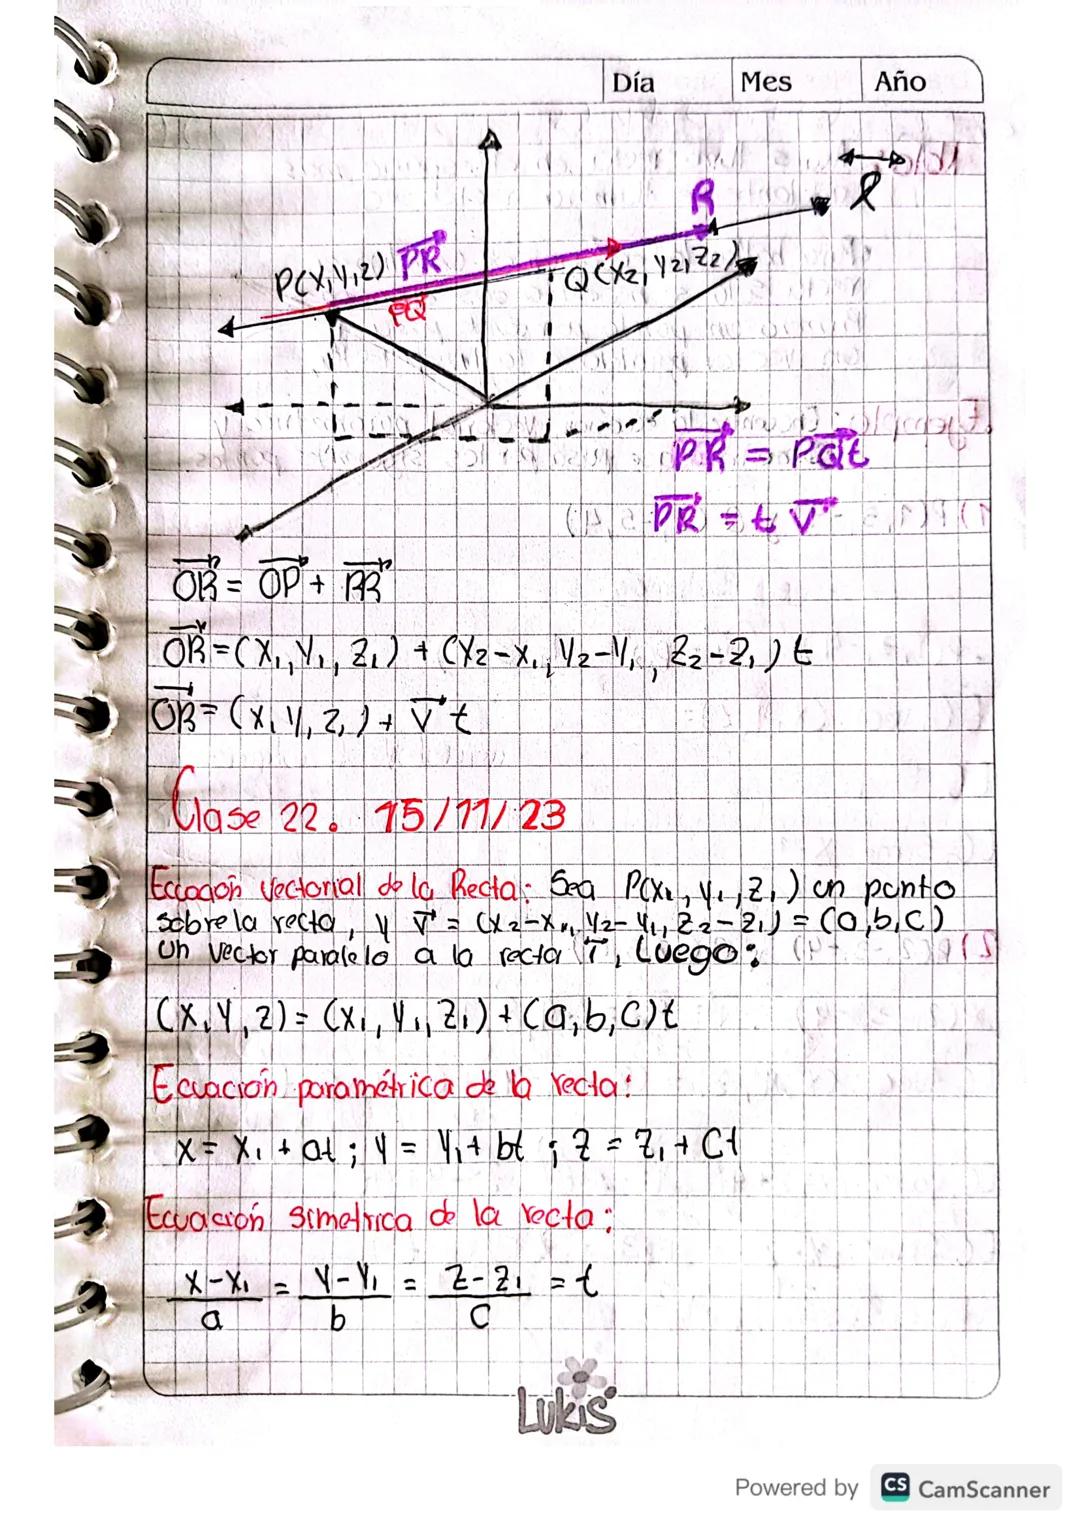 Día Mes Año
ℓ
R
P(X,Y,Z) PR⃗
Q(X₂, Y₂, Z₂)
PQ⃗
PR⃗ = PQ⃗t
PR⃗ = t V⃗
OR⃗ = OP⃗ + PR⃗
OR⃗ = (X₁, Y₁, Z₁) + (X₂-X₁, Y₂-Y₁, Z₂-Z₁) t
OR⃗ = (X, Y, Z,) + V⃗ t
Clase 22. 15/11/23
Ecuación Vectorial de la Recta: Sea P(X₁, Y₁, Z₁) un punto
sobre la recta, y V⃗ = (X₂-X₁, Y₂-Y₁, Z₂-Z₁) = (a,b,c)
Un vector paralelo a la recta Luego:
(X,Y,Z) = (X₁, Y₁, Z₁) + (a,b,c)t
Ecuación paramétrica de la recta:
X = X₁ + at ; Y = Y₁ + bt ; Z = Z₁ + Ct
Ecuación simetrica de la recta:
X-X₁ = Y-Y₁ = Z-Z₁ = t
a b c
Lukis
Powered by CS CamScanner